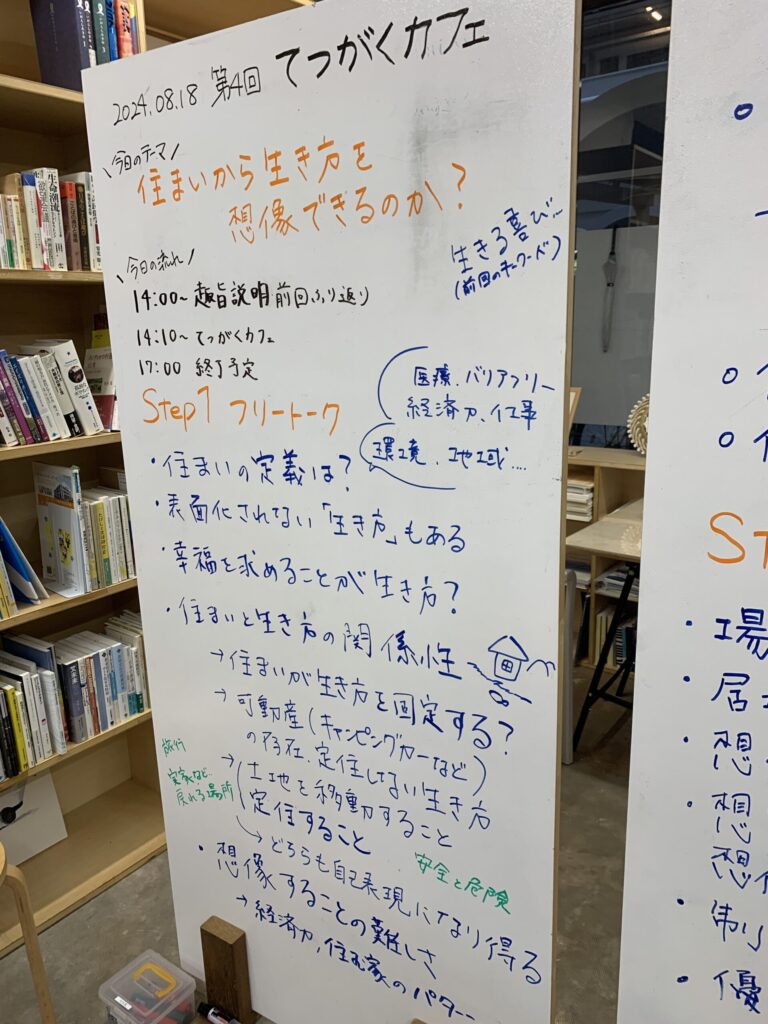 2024.08.18 第4回 てつがくカフェ
\今日のテーマ/
住まいから生き方を
想像できるのか?
生きる喜び…
(前回のキーワード)
\今日の流れ/
14:00~ 趣旨説明 前回ふり返り
14:10~ てつがくカフェ
17:00 終了予定
Step1 フリートーク
医療、バリアフリー
経済力、仕事
環境、地域....
・住まいの定義は?
・表面化されない「生き方」もある
・幸福を求めることが生き方?
・住まいと生き方の関係性
→住まいが生き方を固定する?
→可動産(キャンピングカーなど)
の存在、定住しない生き方
旅行
実家など、
戻れる場所
→土地を移動すること
定住すること
→どちらも自己表現になり得る
安全と危険
・想像することの難しさ
→経済力、住む家のパター
・場
・居
・想
・想
想
・制
・優